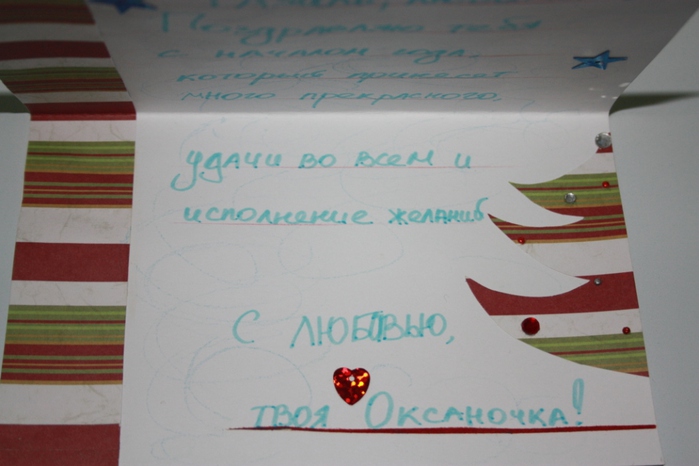 Поздравляю тебя
с началом года,
который принесет
много прекрасного,
удачи во всем и
исполнение желаний
С ЛЮБОВЬЮ,
ТВОЯ Оксаночка!